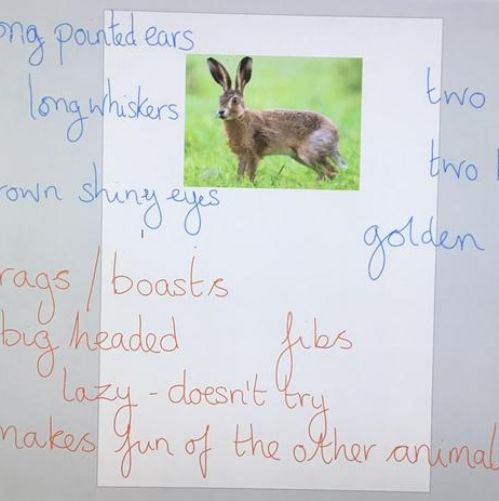 ong pointed ears
long whiskers
two
two
rown shiny eyes
golden
rags / boasts
big headed
fibs
lazy - doesn't try
makes fun of the other animal